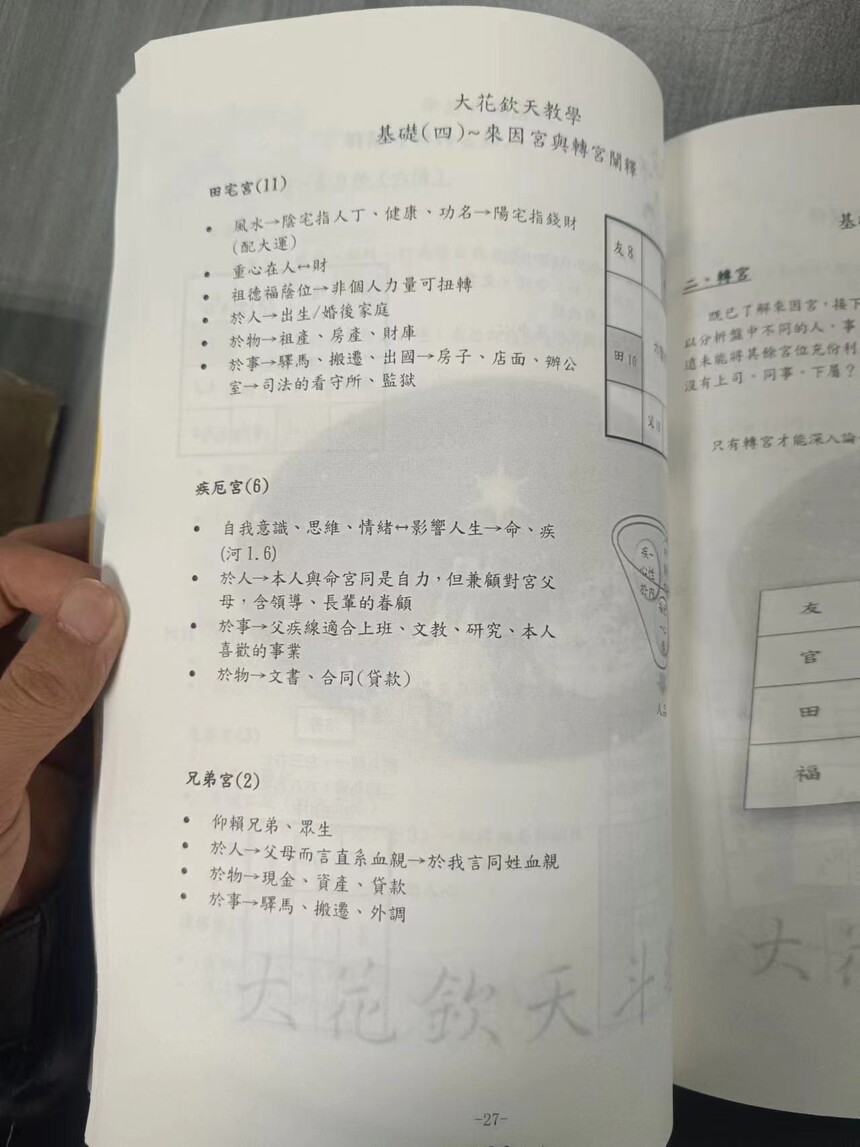 大花欽天教學
基礎(四)~來因宮與轉宮闡釋
田宅宮(11)
• 風水→陰宅指人丁、健康、功名→陽宅指錢財
(配大運)
• 重心在人↔財
• 祖德福蔭位→非個人力量可扭轉
• 於人→出生/婚後家庭
• 於物→祖產、房產、財庫
• 於事→驛馬、搬遷、出國→房子、店面、辦公
室→司法的看守所、監獄
疾厄宮(6)
• 自我意識、思維、情緒↔影響人生→命、疾
(河1.6)
• 於人→本人與命宮同是自力,但兼顧對宮父
母,含領導、長輩的眷顧
• 於事→父疾線適合上班、文教、研究、本人
喜歡的事業
• 於物→文書、合同(貸款)
兄弟宮(2)
• 仰賴兄弟、眾生
• 於人→父母而言直系血親→於我言同姓血親
• 於物→現金、資產、貸款
• 於事→驛馬、搬遷、外調
大花欽天斗
-27-
友8
田10
父
疾
基
二、轉宮
既已了解來因宮,接下
以分析盤中不同的人、事
這未能將其餘宮位充份利
沒有上司、同事、下屬?
只有轉宮才能深入論
友
官
田
福
大